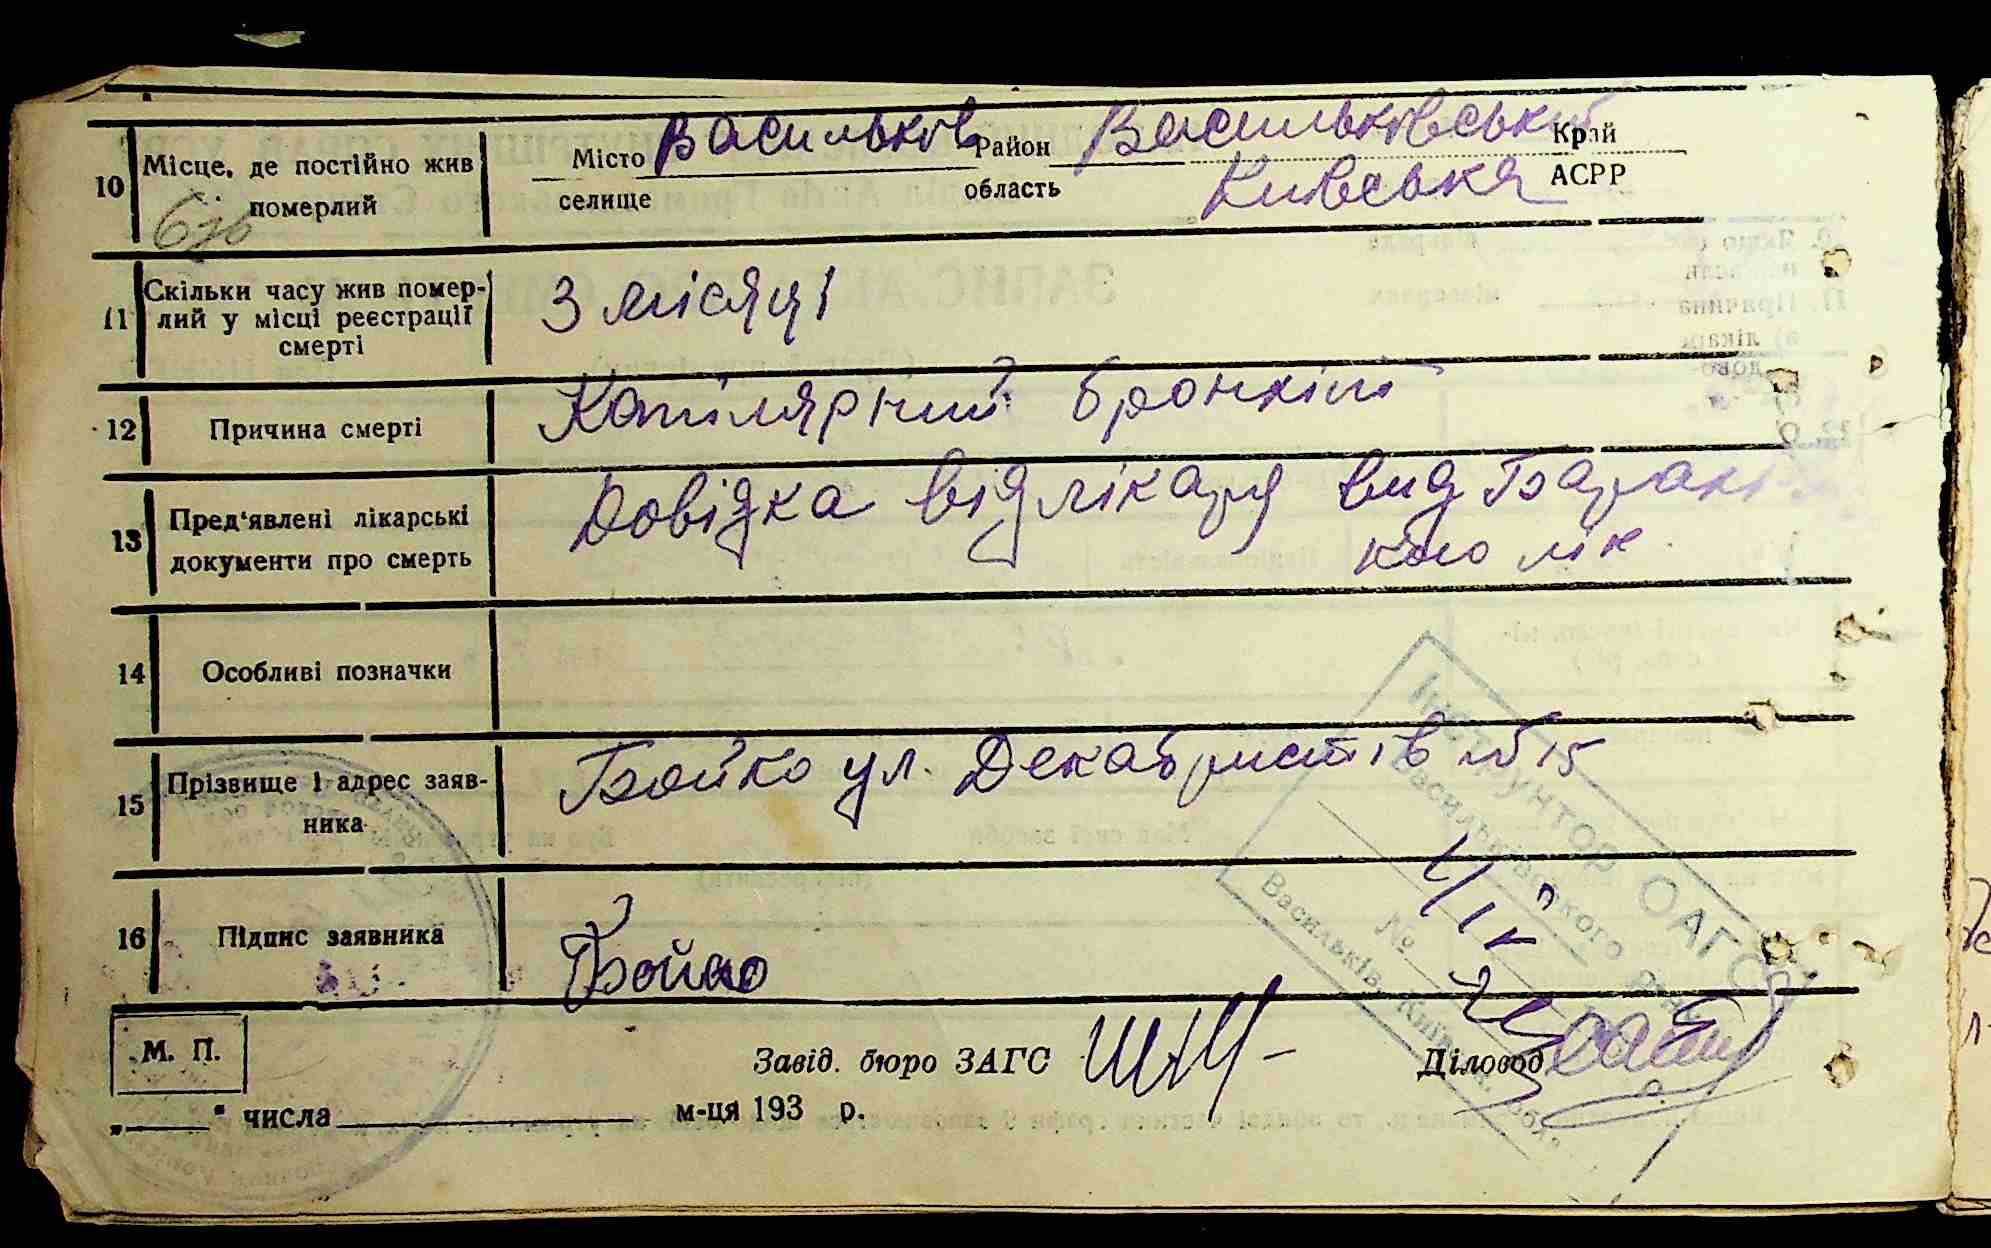 10 Місце, де постійно жив Місто Васильков Район Васильковський Край
померлий селище область Київська АСРР
Скільки часу жив помер-
11 лий у місці реєстрації 3 місяці
смерті
12 Причина смерті Капілярний бронхіт
13 Пред'явлені лікарські Довідка від лікаря вид
документи про смерть
14 Особливі позначки
15 Прізвище і адрес заяв- Бойко ул. Декабристів № 15
ника
16 Підпис заявника Бойко
Інструктор ОАГС
Васильківського
№
Васильків,
М. П. Завід. бюро ЗАГС Діловод
„ " числа м-ця 193 р.